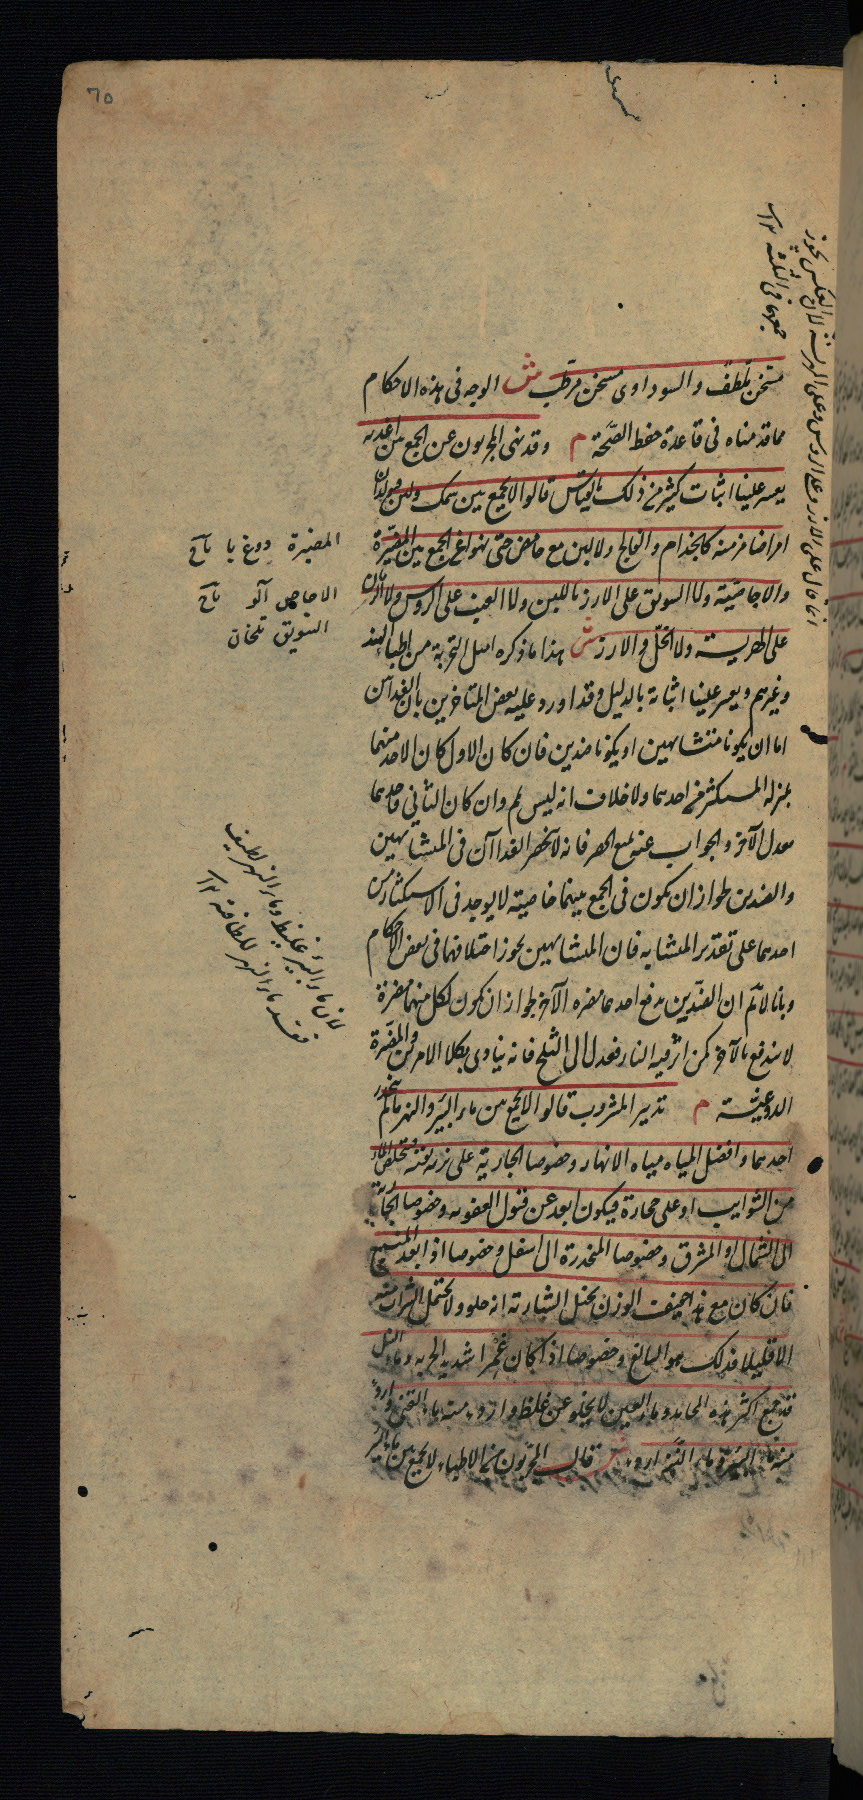 ٦٥
مسخن ملطف والسوداوى مسخن مرطب ش الوجه فى هذه الاحكام
مما قدمناه فى قاعدة حفظ الصحة م وقد نهى المجربون عن الجمع بين اغذيه
يعسر علينا اثبات كثير من ذلك بالقياس قالوا لا يجمع بين سمك ولبن فيولدان
امراضا مزمنه كالجذام والفالج ولا لبن مع حامض حتى نهوا عن الجمع بين المضيرة
والاجاصية ولا السويق على الارز باللبن ولا العنب على الروس ولا الرمان
على الهريسة ولا الخل والارز ش هذا ما ذكره اهل التجربة من اطباء الهند
وغيرهم ويعسر علينا اثباته بالدليل وقد اورد عليه بعض المتاخرين بان الغذائين
اما ان يكونا متشابهين او يكونا ضدين فان كان الاول كان الاحد منهما
بمنزلة المستكثر من احدهما ولا خلاف انه ليس لم وان كان الثانى فاحدهما
معدل الآخر والجواب عنه بمنع الحصر فانه لا ينحصر الغذاآن فى المتشابهين
والضدين لجواز ان يكون فى الجمع بينهما خاصية لا يوجد فى الاستكثار من
احدهما على تقدير المتشابه فان المتشابهين يجوز اختلافهما فى بعض الاحكام
وبانا لا نم ان الضدين يدفع احدهما مضره الآخر لجواز ان يكون لكل منهما مضرة
لا يندفع بالآخر كمن اثر فيه النار فعدل الى الثلج فانه يتاذى بكلا الامرين والمضيرة
الدوغية م تدبير المشروب قالوا لا يجمع بين ماء البئر والنهر ما لم ينحدر
احدهما وافضل المياه مياه الانهار وخصوصا الجارية على تربة نقية فيتخلص الماء
من الشوايب او على حجارة فيكون ابعد عن قبول العفونه وخصوصا الجارية
الى الشمال او المشرق وخصوصا المنحدرة الى اسفل وخصوصا اذا بعد المنبع
فان كان مع هذا خفيف الوزن يخيل لشاربه انه حلو ولا يحتمل الشراب منه
الا قليلا فذلك هو البالغ وخصوصا اذا كان غمرا شديد الجريه وماء النيل
قد جمع اكثر هذه المحامد وماء العين لا يخلو عن غلظ واردء منه ماء القنى واردء
منه ماء البئر وماء النز اردء ش قال المجربون من الاطباء لا يجمع بين ماء البئر
المضيرة دوغ با تاج
الاجاص آلو تاج
السويق تلخان
لان ماء البئر غليظ وماء النهر لطيف
فيفسد ماء النهر للطافته ١٢
انما قال على الارز وعلى الروس وعلى الهريسة لان العكس يجوز
جمعها فى الثلثة ١٢